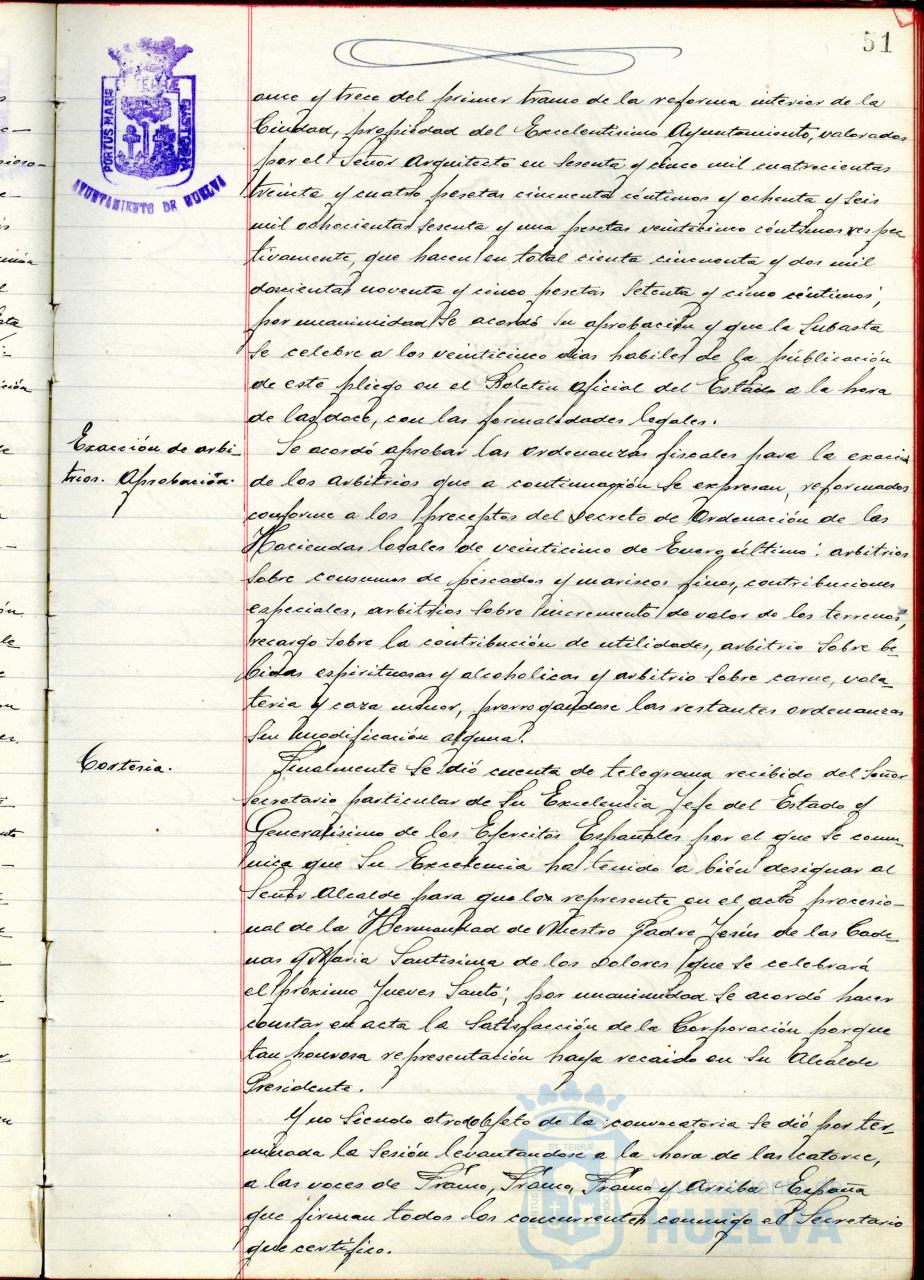 51
PORTUS MARIS
ET TERRAE
CUSTODIA
AYUNTAMIENTO DE HUELVA
once y trece del primer tramo de la reforma interior de la
Ciudad, propiedad del Excelentisimo Ayuntamiento, valorados
por el Señor Arquitecto en sesenta y cinco mil cuatrocientas
treinta y cuatro pesetas cincuenta céntimos y ochenta y seis
mil ochocientas sesenta y una pesetas veinticinco céntimos respec-
tivamente, que hacen en total cienta cincuenta y dos mil
doscientas noventa y cinco pesetas setenta y cinco céntimos,
por unanimidad se acordó su aprobación y que la subasta
se celebre a los veinticinco dias habiles de la publicación
de este pliego en el Boletin oficial del Estado a la hora
de las doce, con las formalidades legales.
Exacción de arbi-
trios. Aprobación.
Se acordó aprobar las ordenanzas fiscales para la exacción
de los arbitrios que a continuación se expresan, reformados
conforme a los preceptos del Decreto de Ordenación de las
Haciendas locales de veinticinco de Enero último: arbitrios
sobre consumos de pescados y mariscos finos, contribuciones
especiales, arbitrios sobre incremento de valor de los terrenos,
recargo sobre la contribución de utilidades, arbitrio sobre be-
bidas espirituosas y alcoholicas y arbitrio sobre carne, vola-
teria y caza menor, prorrogandose las restantes ordenanzas
sin modificación alguna.
Cortesia.
Finalmente se dió cuenta de telegrama recibido del Señor
Secretario particular de Su Excelencia Jefe del Estado y
Generalisimo de los Ejercitos Españoles por el que se comu-
nica que Su Excelencia ha tenido a bien designar al
Señor Alcalde para que lo represente en el acto procesio-
nal de la Hermandad de Nuestro Padre Jesús de las Cade-
nas y Maria Santisima de los Dolores que se celebrará
el próximo Jueves Santo; por unanimidad se acordó hacer
constar en acta la satisfacción de la Corporación porque
tan honrosa representación haya recaido en su Alcalde
Presidente.
Y no siendo otro objeto de la convocatoria se dió por ter-
minada la sesión levantandose a la hora de las catorce,
a las voces de Franco, Franco, Franco y Arriba España
que firman todos los concurrentes conmigo el Secretario
que certifico.
Ayuntamiento de
HUELVA